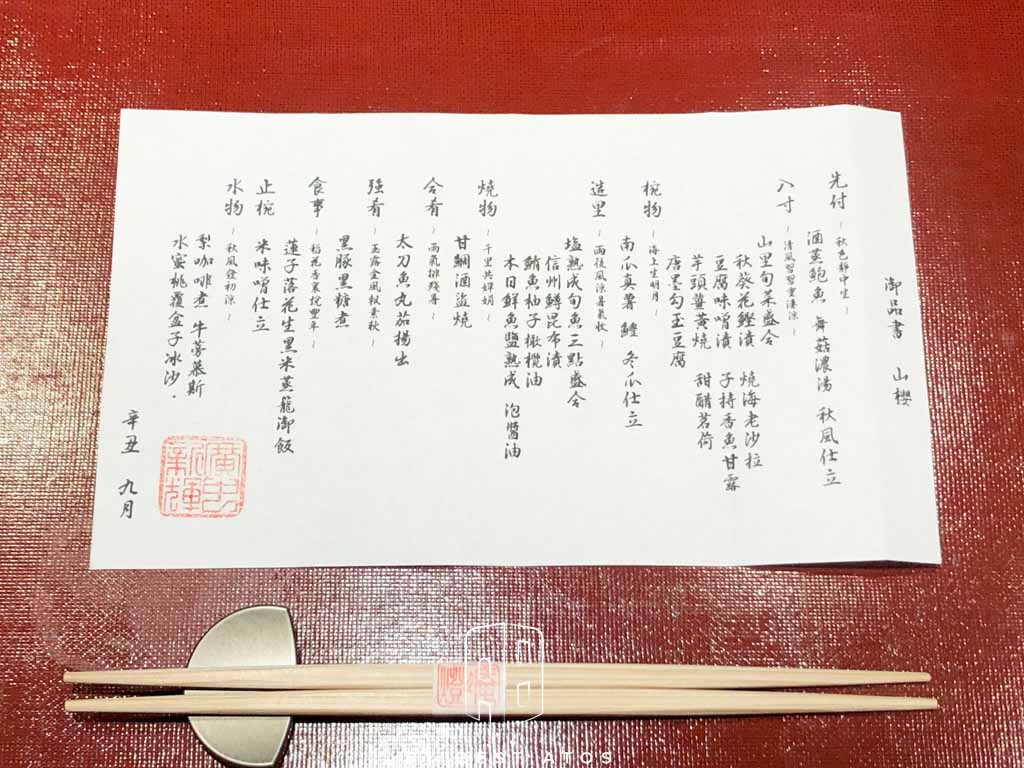 御品書　山櫻
先付 ~ 秋色靜中生 ~
酒蒸鮑魚　舞菇濃湯　秋風仕立
八寸 ~ 清風習習重淒涼 ~
山里旬菜盛合
秋葵花鰹漬　燒海老沙拉
豆腐味噌漬　子持香魚甘露
芋頭薑黃燒　甜醋茗荷
唐墨勾玉豆腐
椀物 ~ 海上生明月 ~
南瓜真薯　鱧　冬瓜仕立
造里 ~ 雨後風涼暑氣收 ~
塩熟成旬魚三點盛合
信州鱒昆布漬
鮪魚柚子橄欖油
本日鮮魚鹽熟成　泡醬油
燒物 ~ 千里共嬋娟 ~
甘鯛酒盜燒
合肴 ~ 雨氣排殘暑 ~
太刀魚丸茄揚出
強肴 ~ 玉露金風報素秋 ~
黑豚黑糖煮
食事 ~ 稻花香裏說豐年 ~
蓮子落花生黑米蒸籠御飯
止椀
米味噌仕立
水物 ~ 秋風發初涼 ~
梨咖啡煮　牛蒡慕斯
水蜜桃覆盆子冰沙．
辛丑　九月